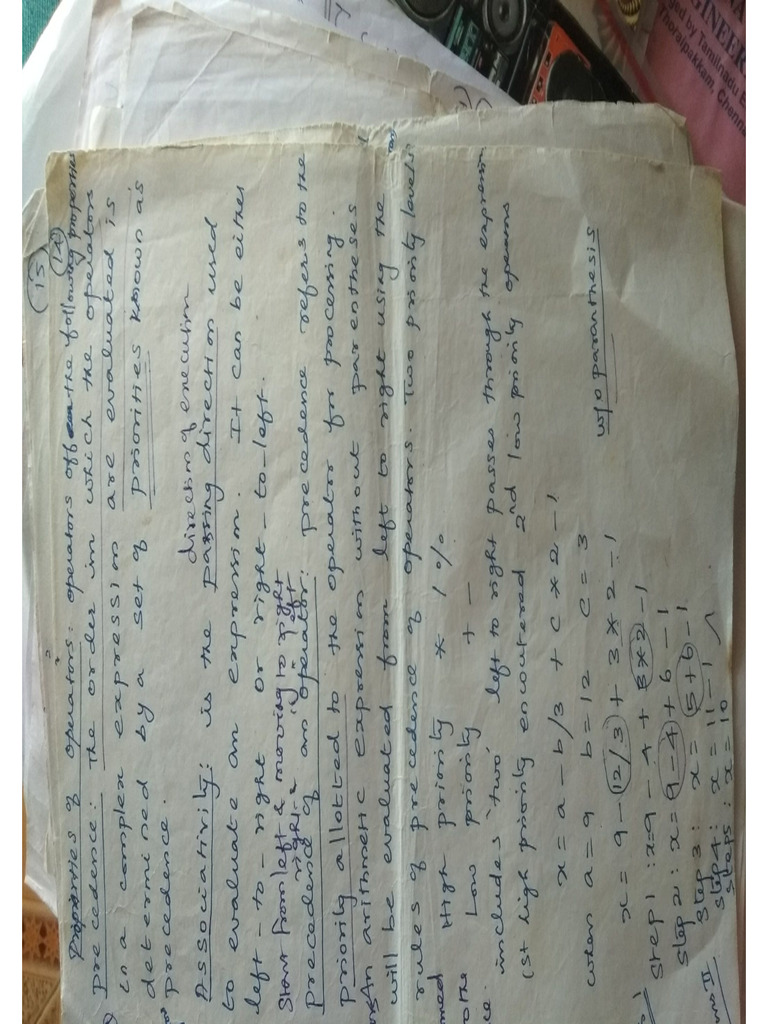 15
12
Properties of operators: operators offer the following properties
precedence: the order in which the operators
in a complex expression are evaluated is
determined by a set of priorities known as
precedence.
direction of execution
Associativity: is the passing direction used
to evaluate an expression. It can be either
left-to-right or right-to-left.
Start from left & moving to right
right & " " left
precedence of an operator: precedence refers to the
priority allotted to the operator for processing.
An arithmetic expression without parentheses
will be evaluated from left to right using the
rules of precedence of operators. Two priority levels
High priority * / %
Low priority + -
includes 'two' left to right passes through the expression
1st high priority encountered 2nd low priority operators
x = a - b/3 + c * 2 - 1
when a = 9 b = 12 c = 3
w/o paranthesis
x = 9 - 12/3 + 3 * 2 - 1
Step 1: x = 9 - 4 + 3 * 2 - 1
Step 2: x = 9 - 4 + 6 - 1
Step 3: x = 5 + 6 - 1
Step 4: x = 11 - 1
Step 5: x = 10
GINEER
ged by Tamilnadu E
Thoraipakkam, Chenna